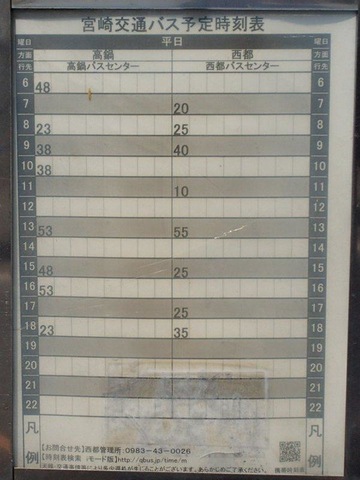 宮崎交通バス予定時刻表
曜日 平日 曜日
方面 高鍋 西都 方面
行先 高鍋バスセンター 西都バスセンター 行先
6 48 6
7 20 7
8 23 25 8
9 38 40 9
10 38 10
11 10 11
12 12
13 53 55 13
14 14
15 48 25 15
16 53 16
17 25 17
18 23 35 18
19 19
20 20
21 21
22 22
凡例 凡例
【お問合せ先】西都管理所:0983-43-0026
【時刻表検索 iモード版】http://qbus.jp/time/m
携帯時刻表